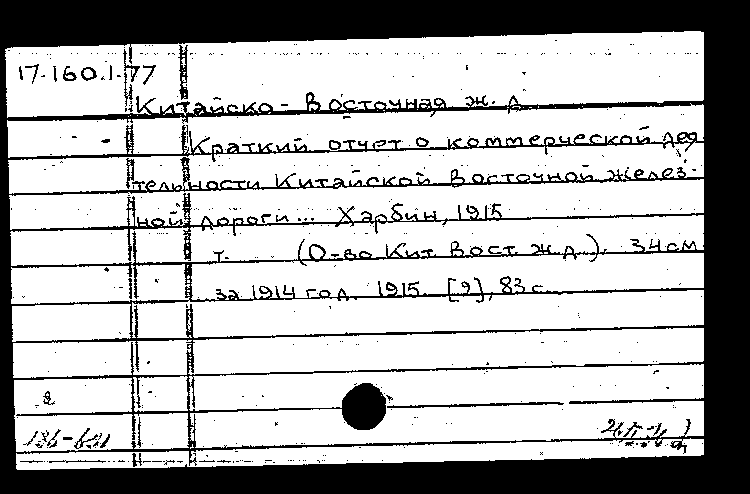 17-160.1-77
Китайско-Восточная ж. д.
Краткий отчет о коммерческой дея
тельности Китайской Восточной желез-
ной дороги... Харбин, 1915
т. (О-во Кит. Вост. ж.д.). 34 см.
за 1914 год. 1915. [9], 83 с.
2